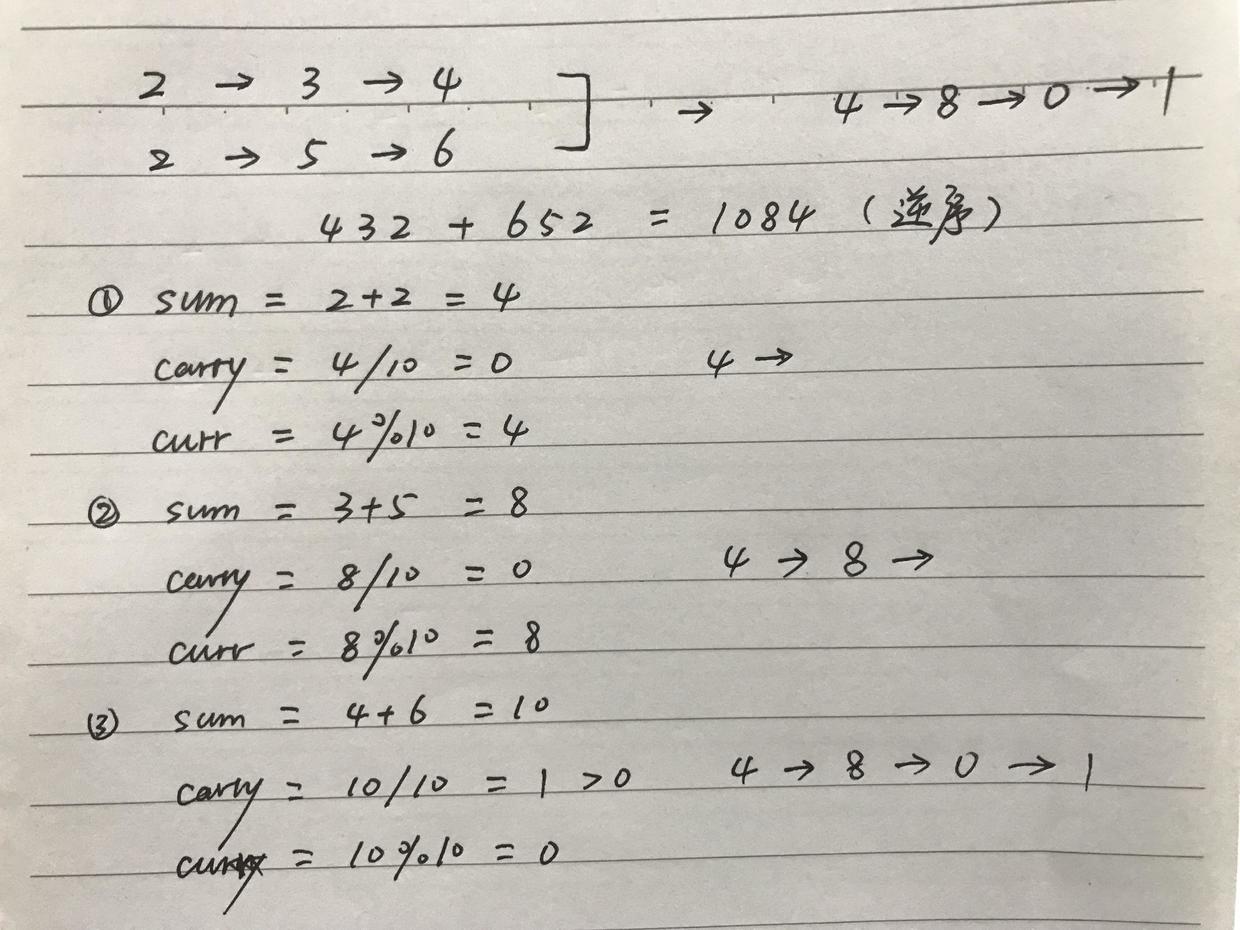 2 → 3 → 4
2 → 5 → 6
→ 4 → 8 → 0 → 1
432 + 652 = 1084 (逆序)
① sum = 2+2 = 4
carry = 4/10 = 0 4 →
curr = 4%10 = 4
② sum = 3+5 = 8
carry = 8/10 = 0 4 → 8 →
curr = 8%10 = 8
(3) sum = 4+6 = 10
carry = 10/10 = 1 >0 4 → 8 → 0 → 1
curr = 10%10 = 0